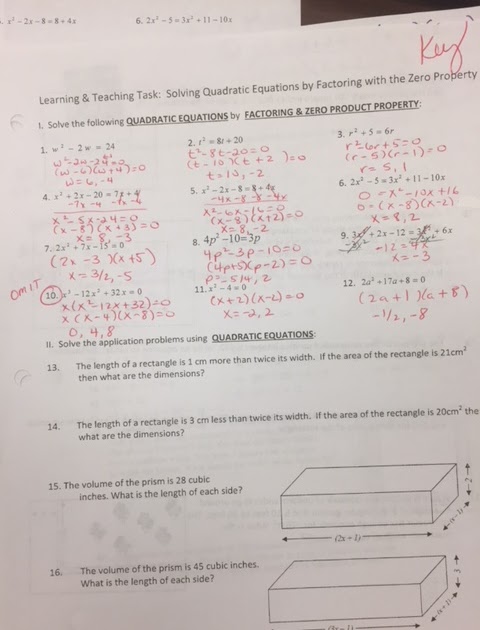 x² - 2x - 8 = 8 + 4x
6. 2x² - 5 = 3x² + 11 - 10x
Key
Learning & Teaching Task: Solving Quadratic Equations by Factoring with the Zero Property
I. Solve the following QUADRATIC EQUATIONS by FACTORING & ZERO PRODUCT PROPERTY:
1. w² - 2w = 24
w² - 2w - 24 = 0
(w - 6)(w + 4) = 0
w = 6, -4
2. t² = 8t + 20
t² - 8t - 20 = 0
(t - 10)(t + 2) = 0
t = 10, -2
3. r² + 5 = 6r
r² 6r + 5 = 0
(r - 5)(r - 1) = 0
r = 5, 1
4. x² + 2x - 20 = 7x + 4
-7x -4 -7x -4
x² - 5x - 24 = 0
(x - 8)(x + 3) = 0
x = 8, -3
5. x² - 2x - 8 = 8 + 4x
-4x -8 -8 -4x
x² - 6x - 16 = 0
(x - 8)(x + 2) = 0
x = 8, -2
6. 2x² - 5 = 3x² + 11 - 10x
0 = x² - 10x + 16
0 = (x - 8)(x - 2)
x = 8, 2
7. 2x² + 7x - 15 = 0
(2x - 3)(x + 5)
x = 3/2, -5
8. 4p² - 10 = 3p
4p² - 3p - 10 = 0
(4p + 5)(p - 2) = 0
p = -5/4, 2
9. 3x² + 2x - 12 = 3x² + 6x
-12 = 4x
x = -3
OMIT
10. x³ - 12x² + 32x = 0
x(x² - 12x + 32) = 0
x(x - 4)(x - 8) = 0
0, 4, 8
11. x² - 4 = 0
(x + 2)(x - 2) = 0
x = -2, 2
12. 2a² + 17a + 8 = 0
(2a + 1)(a + 8)
-1/2, -8
II. Solve the application problems using QUADRATIC EQUATIONS:
13. The length of a rectangle is 1 cm more than twice its width. If the area of the rectangle is 21cm²
then what are the dimensions?
14. The length of a rectangle is 3 cm less than twice its width. If the area of the rectangle is 20cm² the
what are the dimensions?
15. The volume of the prism is 28 cubic
inches. What is the length of each side?
2
(x - 1)
(2x + 1)
16. The volume of the prism is 45 cubic inches.
What is the length of each side?
3